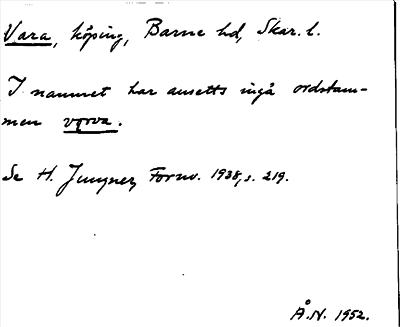 Vara, köping, Barne hd, Skar. l.
I namnet har ansetts ingå ordstam-
men vorva.
Se H. Jungner, Fornv. 1938, s. 219.
Å.N. 1952.